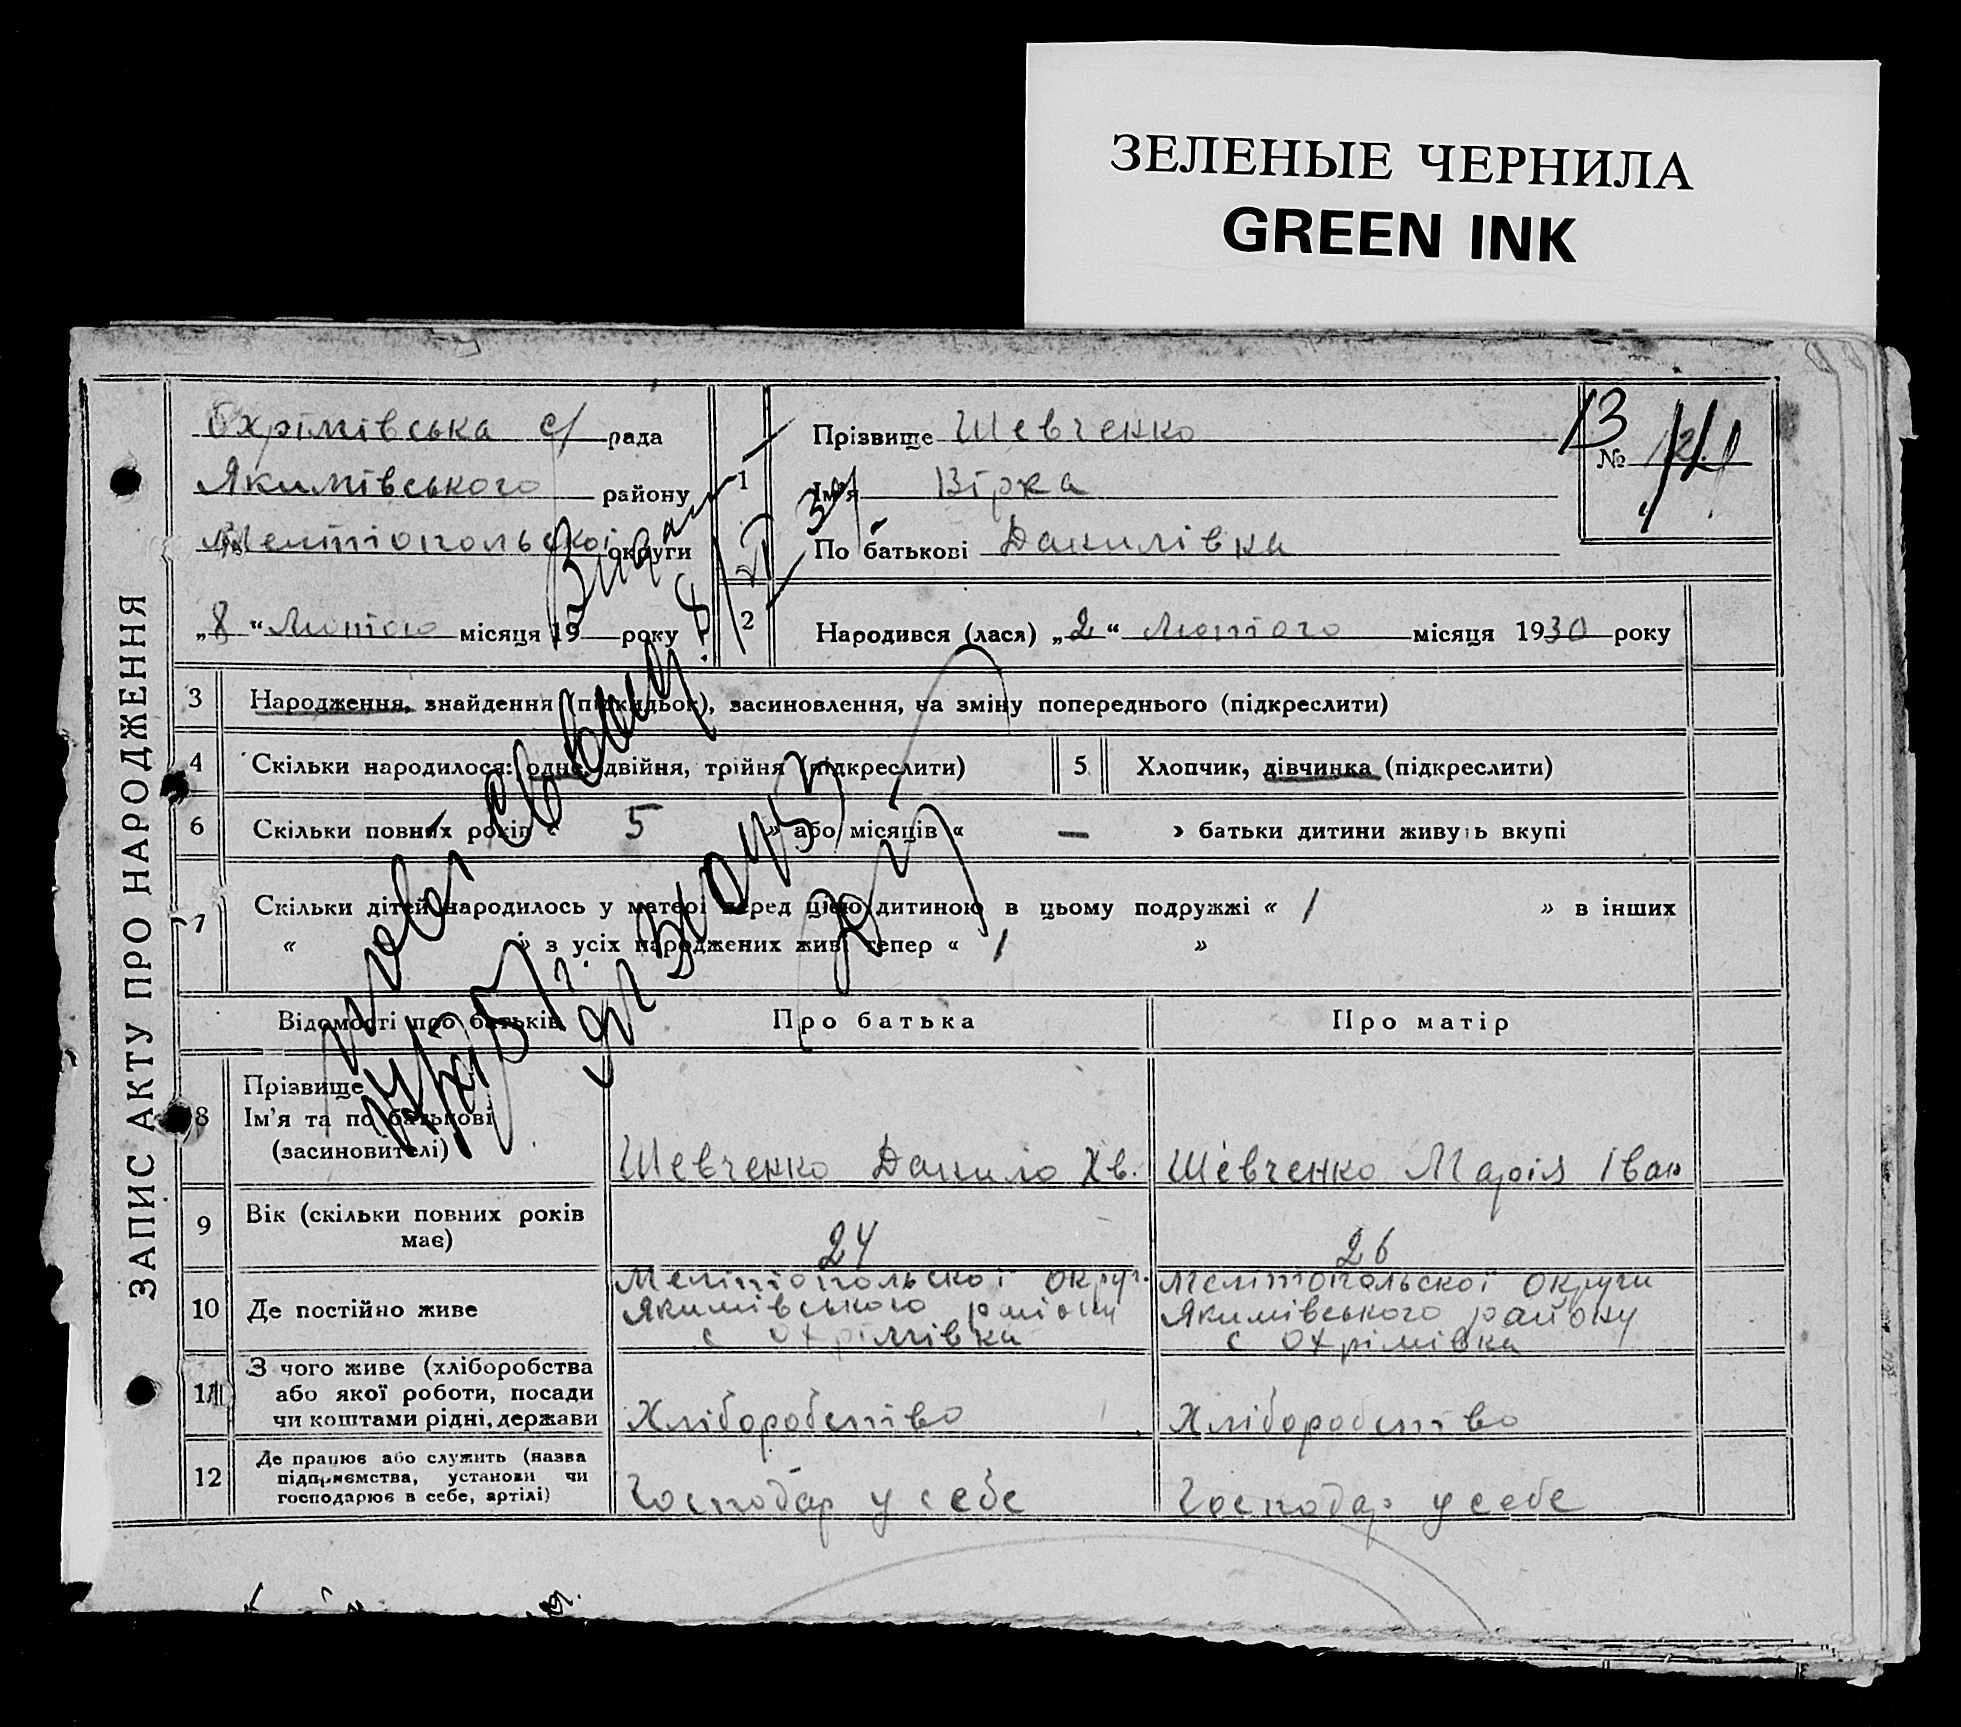 ЗЕЛЕНЫЕ ЧЕРНИЛА
GREEN INK
ЗАПИС АКТУ ПРО НАРОДЖЕННЯ
Охрімівська с/рада
Якимівського району
Мелітопольської округи
„8“ Лютого місяця 19 року
1
Прізвище Шевченко
Ім'я Вірка
По батькові Данилівка
13
№
2
Народився (лася) „2“ Лютого місяця 1930 року
3 Народження, знайдення (підкидьок), засиновлення, на зміну попереднього (підкреслити)
4 Скільки народилося: одне, двійня, трійня (підкреслити)
5 Хлопчик, дівчинка (підкреслити)
6 Скільки повних років « 5 » або місяців « — » батьки дитини живуть вкупі
7 Скільки дітей народилось у матері перед цією дитиною в цьому подружжі « 1 » в інших
« » з усіх народжених живі тепер « 1 »
Відомості про батьків Про батька Про матір
8 Прізвище
Ім'я та по батькові
(засиновителі)
Шевченко Данило Хв.
Шевченко Марія Іван
9 Вік (скільки повних років
має)
24
26
10 Де постійно живе
Мелітопольської округ.
Якимівського району
с Охрімівка
Мелітопольської округи
Якимівського району
с Охрімівка
11 З чого живе (хліборобства
або якої роботи, посади
чи коштами рідні, держави
Хліборобство
Хліборобство
12 Де працює або служить (назва
підприємства, установи чи
господарює в себе, артілі)
Господар у себе
Господар у себе